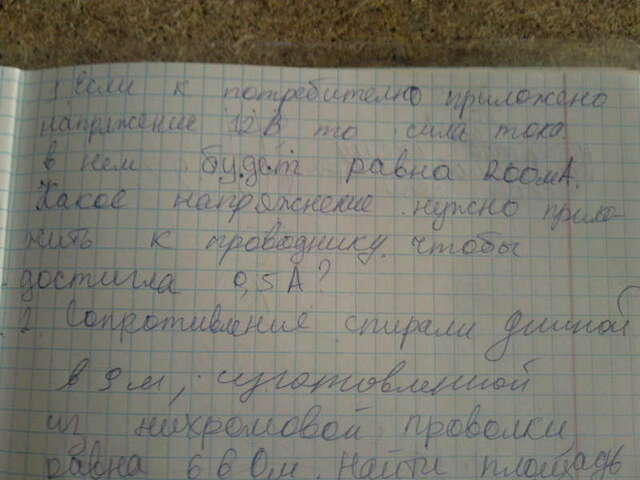 1 если к потребителю приложено
напряжение 12 В то сила тока
в нем будет равна 200 мА.
Какое напряжение нужно прило-
жить к проводнику, чтобы
достигла 0,5 А?
2 Сопротивление спирали длиной
в 9 м, изготовленной
из нихромовой проволки
равна 66 Ом. Найти площадь